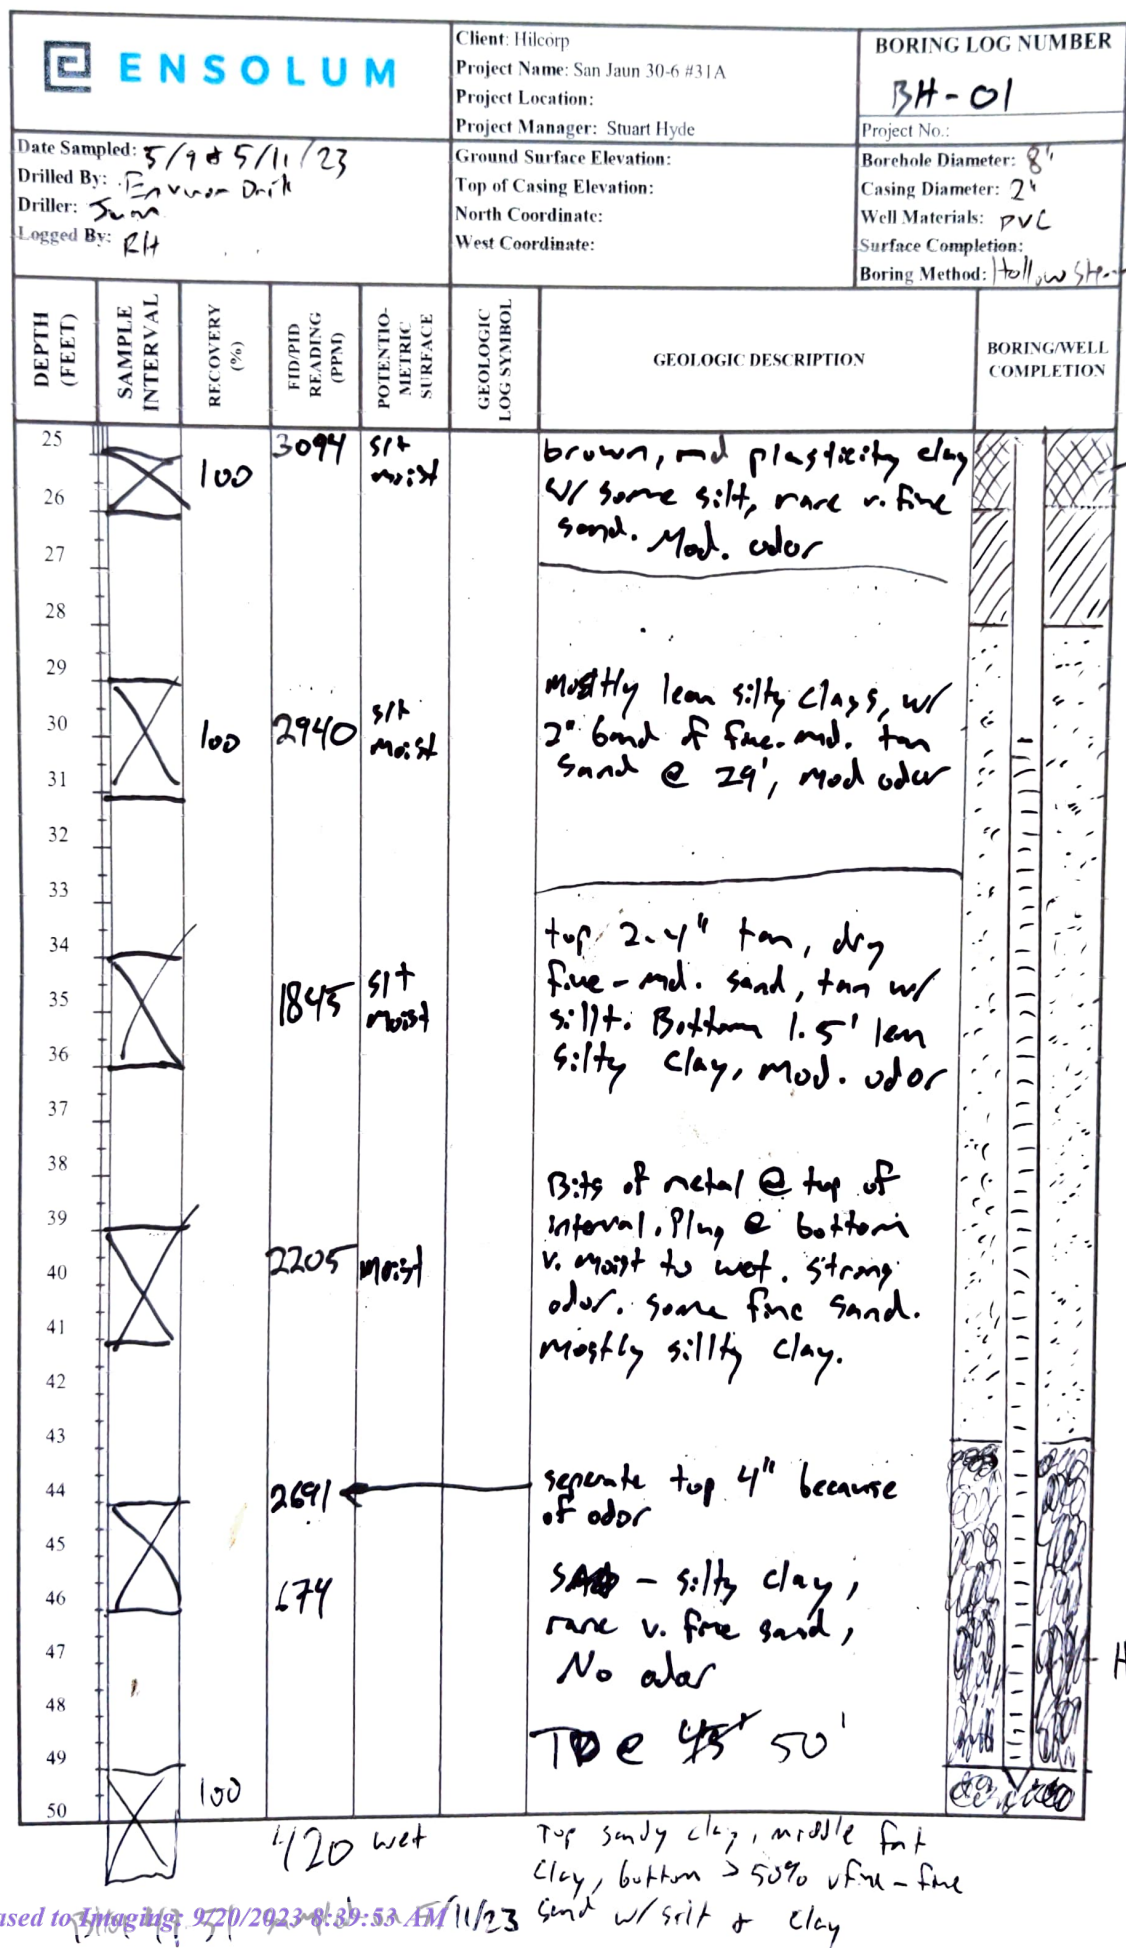 ENSOLUM
Client: Hilcorp
Project Name: San Jaun 30-6 #31A
Project Location:
Project Manager: Stuart Hyde
BORING LOG NUMBER
BH-01
Project No.:
Date Sampled: 5/9 & 5/11/23
Drilled By: Environ Drill
Driller:
Logged By: RH
Ground Surface Elevation:
Top of Casing Elevation:
North Coordinate:
West Coordinate:
Borehole Diameter: 8"
Casing Diameter: 2"
Well Materials: PVC
Surface Completion:
Boring Method: Hollow Stem
DEPTH (FEET)
SAMPLE INTERVAL
RECOVERY (%)
FID/PID READING (PPM)
POTENTIO-METRIC SURFACE
GEOLOGIC LOG SYMBOL
GEOLOGIC DESCRIPTION
BORING/WELL COMPLETION
25
3094 slt
brown, md plasticity clay
100
moist
26
w/ some silt, rare v. fine
sand. Mod. odor
27
28
29
mostly lean silty clays, w/
30
100 2940 slt moist
2" band of fine-md. tan
sand @ 29', mod odor
31
32
33
34
top 2-4" tan, dry
fine-md. sand, tan w/
35
1845 slt moist
sillt. Bottom 1.5' lean
36
silty clay, mod. odor
37
38
Bits of metal @ top of
39
interval. Plug @ bottom
40
2205 moist
v. moist to wet. strong
odor. some fine sand.
41
mostly sillty clay.
42
43
44
2691
seperate top 4" because
of odor
45
46
674
- silty clay,
rare v. fine sand,
47
No odor
H
48
TD @ 45' 50'
49
100
50
420 wet
Top sandy clay, middle fat
clay, bottom > 50% vfine-fine
sand w/ silt & clay
ased to Imaging: 9/20/2023 8:39:53 AM
5/11/23